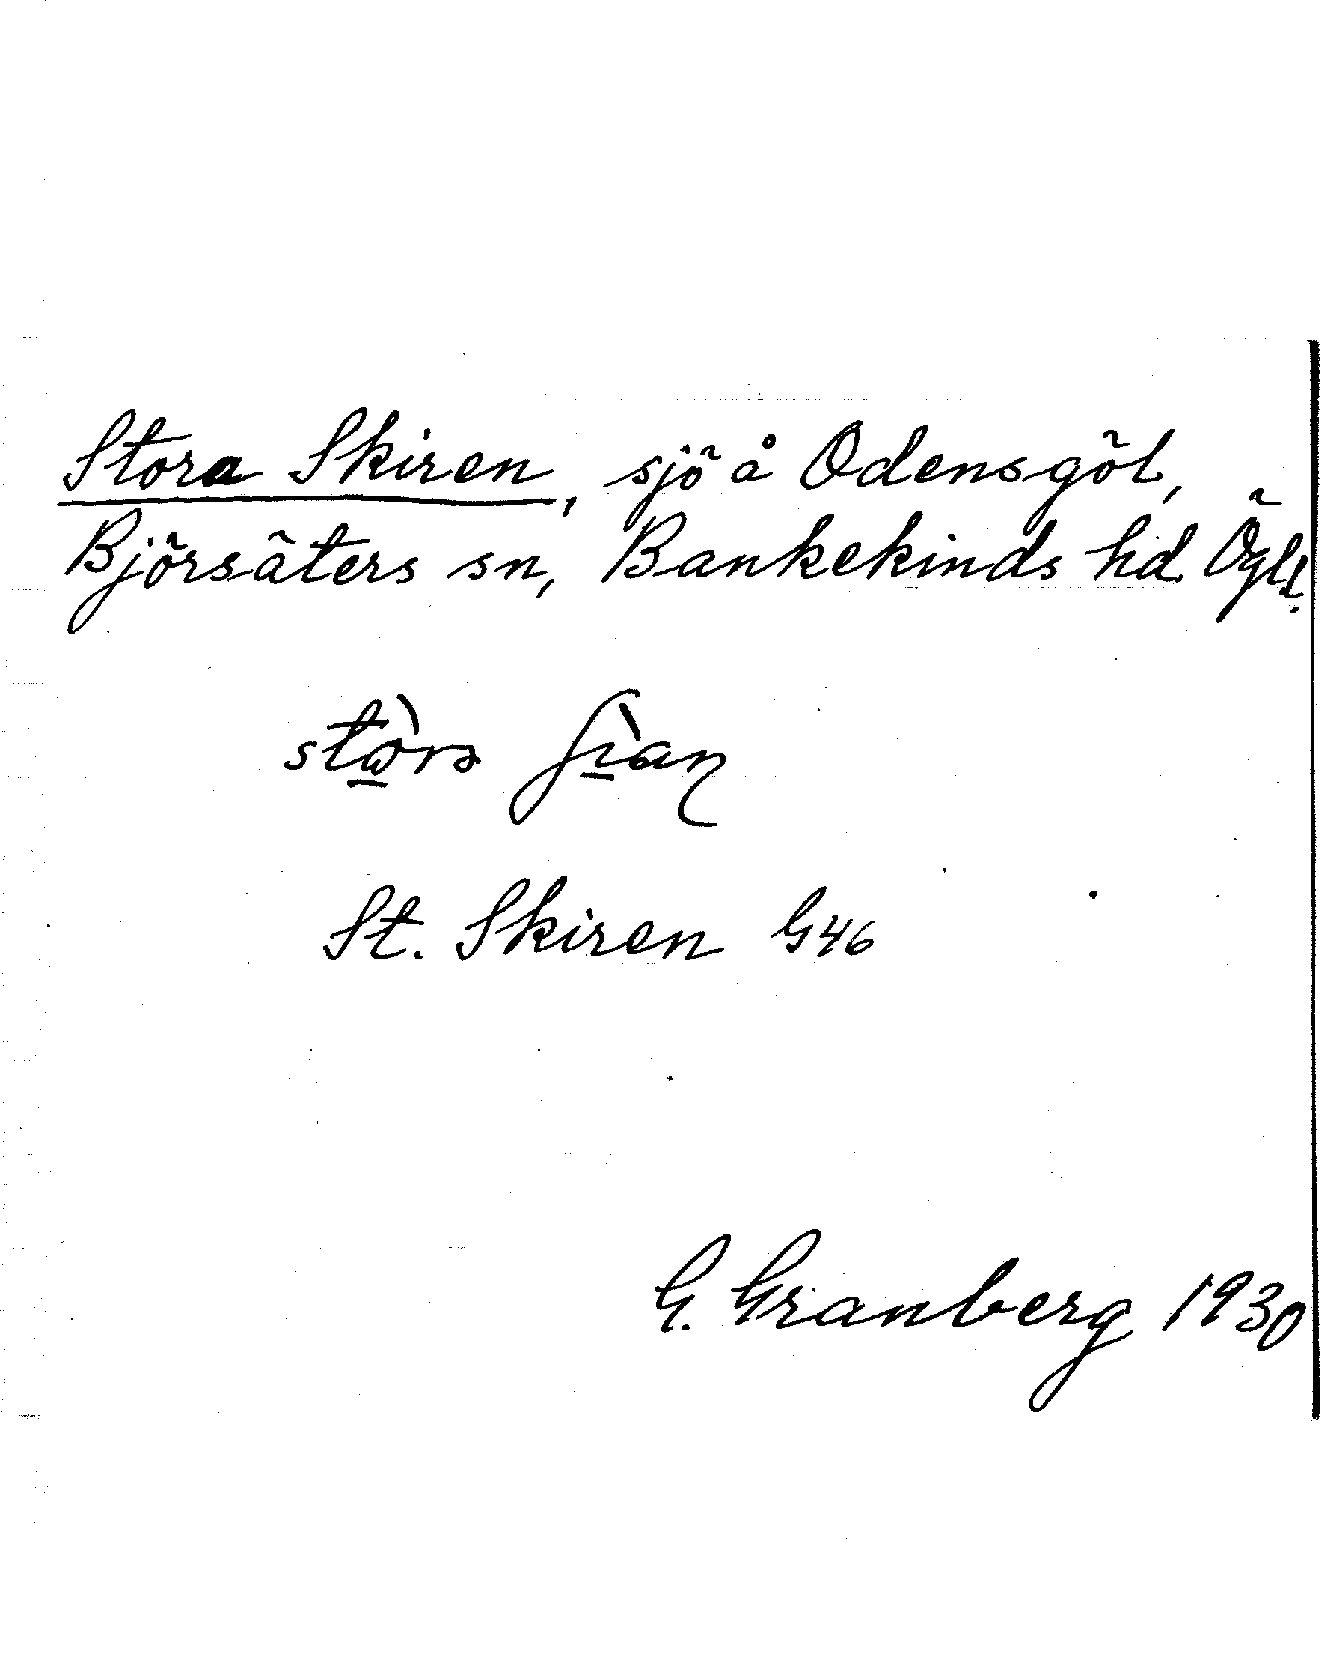 Stora Skiren, sjö å Odensgöl,
Björsäters sn, Bankekinds hd Ögl.
St. Skiren G46
G. Granberg 1930